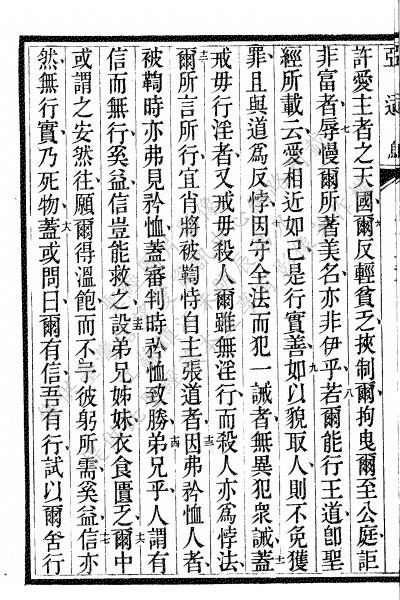 許愛主者之天國爾反輕貧乏挾制爾拘曳爾至公庭詎
非富者辱慢爾所著美名亦非伊乎若爾能行王道卽聖
經所載云愛相近如己是行實善如以貌取人則不免獲
罪且與道為反悖因守全法而犯一誡者無異犯衆誡蓋
戒毋行淫者又戒毋殺人爾雖無淫行而殺人亦為悖法
爾所言所行宜肖將被鞫恃自主張道者因弗矜恤人者
被鞫時亦弗見矜恤蓋審判時矜恤致勝弟兄乎人謂有
信而無行奚益信豈能救之設弟兄姊妹衣食匱乏爾中
或謂之安然往願爾得溫飽而不予彼躬所需奚益信亦
然無行實乃死物蓋或問曰爾有信吾有行試以爾舍行